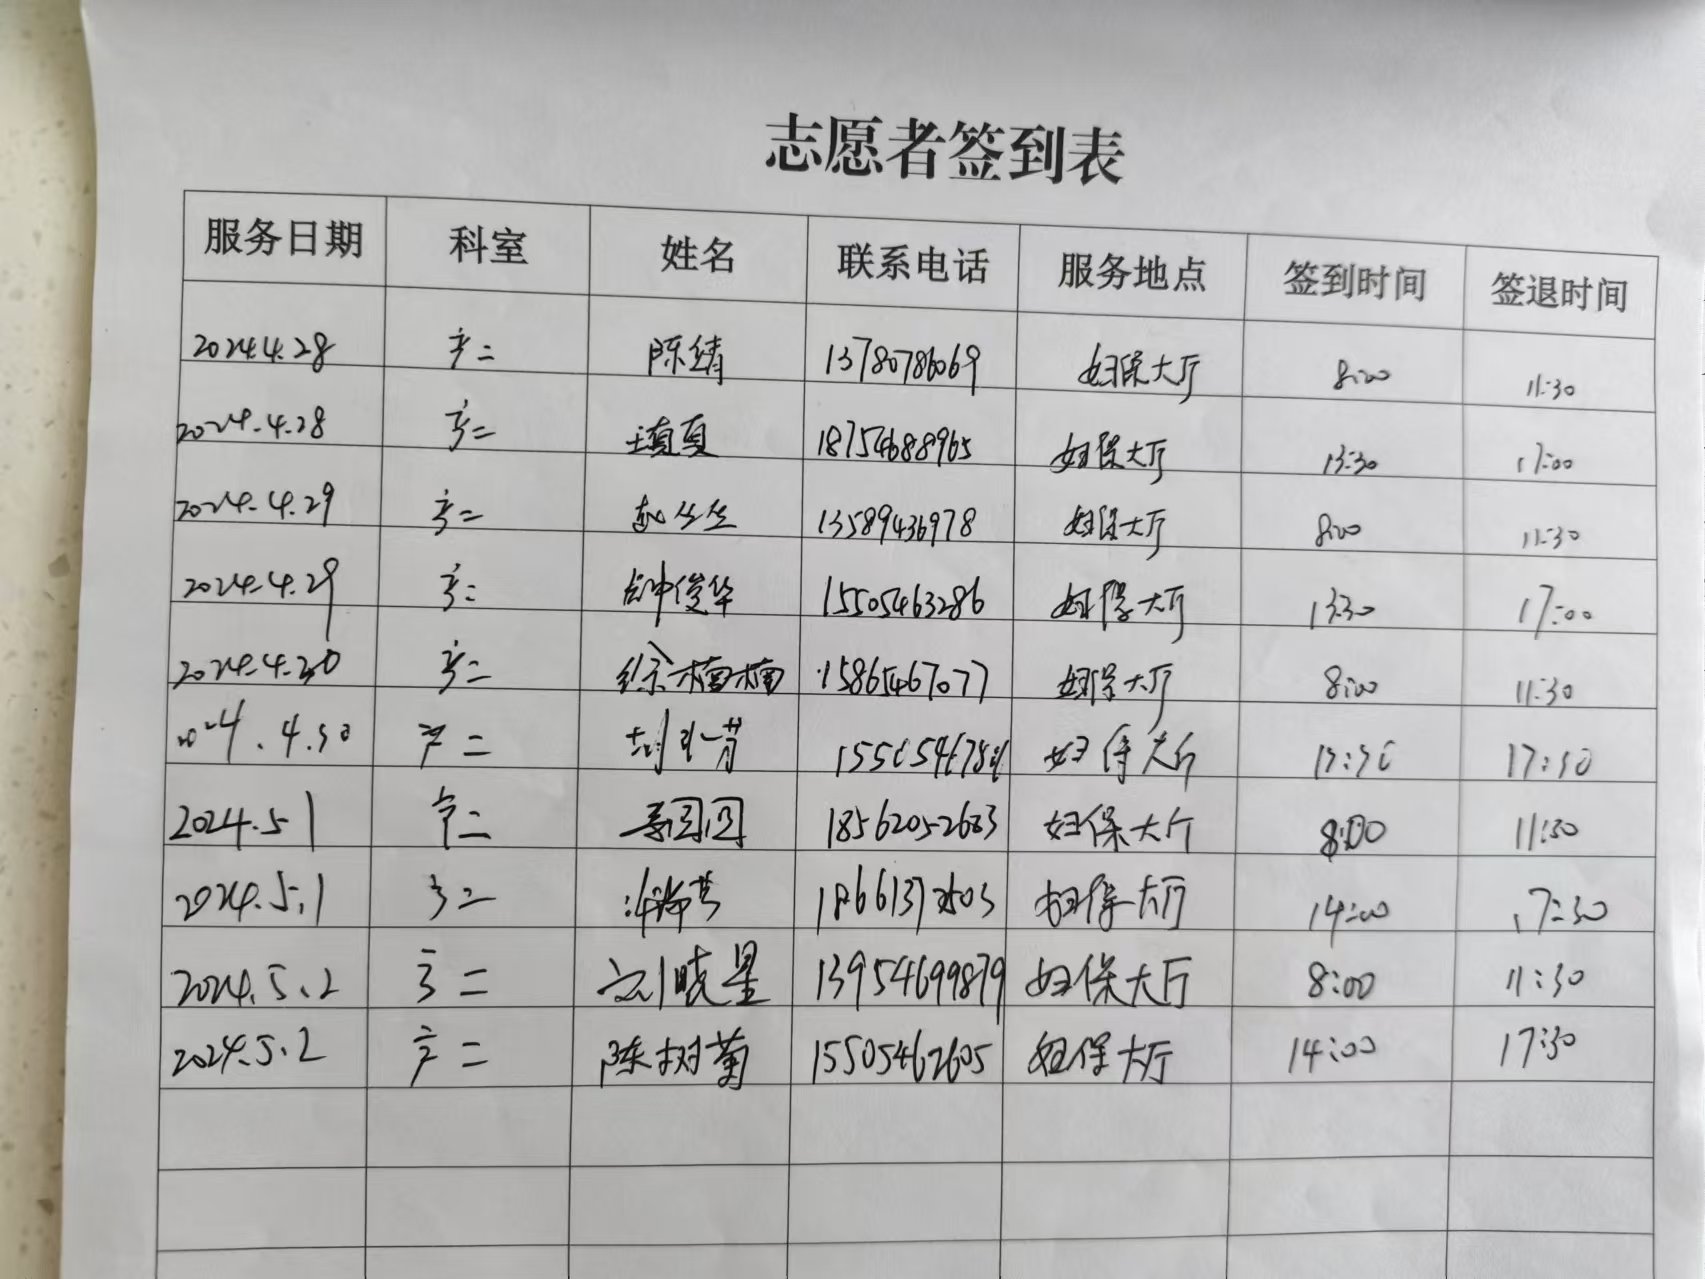 志愿者签到表
服务日期 科室 姓名 联系电话 服务地点 签到时间 签退时间
2024.4.28 产二 陈绪 13780786069 妇保大厅 8:00 11:30
2024.4.28 产二 18754688965 妇保大厅 13:30 17:00
2024.4.29 产二 赵丝丝 13589436978 妇保大厅 8:00 11:30
2024.4.29 产二 钟俊华 15505463286 妇保大厅 13:30 17:00
2024.4.30 产二 徐楠楠 15865467077 妇保大厅 8:00 11:30
2024.4.30 产二 妇保大厅 13:30 17:30
2024.5.1 产二 18562052683 妇保大厅 8:00 11:30
2024.5.1 产二 18661372503 妇保大厅 14:00 17:30
2024.5.2 产二 刘晓星 13954699879 妇保大厅 8:00 11:30
2024.5.2 产二 陈树菊 15505462605 妇保大厅 14:00 17:30